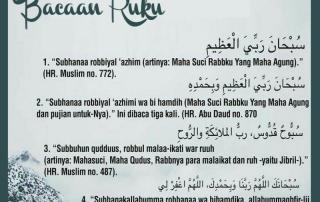 Bacaan Ruku
سُبْحَانَ رَبِّيَ الْعَظِيمِ
1. “Subhanaa robbiyal ‘azhim (artinya: Maha Suci Rabbku Yang Maha Agung).”
(HR. Muslim no. 772).
سُبْحَانَ رَبِّيَ الْعَظِيمِ وَبِحَمْدِهِ
2. “Subhanaa robbiyal ‘azhimi wa bi hamdih (Maha Suci Rabbku Yang Maha Agung
dan pujian untuk-Nya).” Ini dibaca tiga kali. (HR. Abu Daud no. 870
سُبُّوحٌ قُدُّوسٌ، رَبُّ الْمَلَائِكَةِ وَالرُّوحِ
3. “Subbuhun qudduus, robbul malaa-ikati war ruuh
(artinya: Mahasuci, Maha Qudus, Rabbnya para malaikat dan ruh -yaitu Jibril-).”
(HR. Muslim no. 487).
سُبْحَانَكَ اللَّهُمَّ رَبَّنَا وَبِحَمْدِكَ، اللَّهُمَّ اغْفِرْ لِي
4. “Subhanakallahumma robbanaa wa bihamdika, allahummaghfir-lii